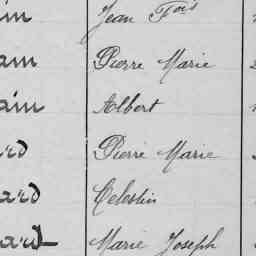 ain Jean Fois
ain Pierre Marie
ain Albert
ard Pierre Marie
ard Celestin
ard Marie Joseph